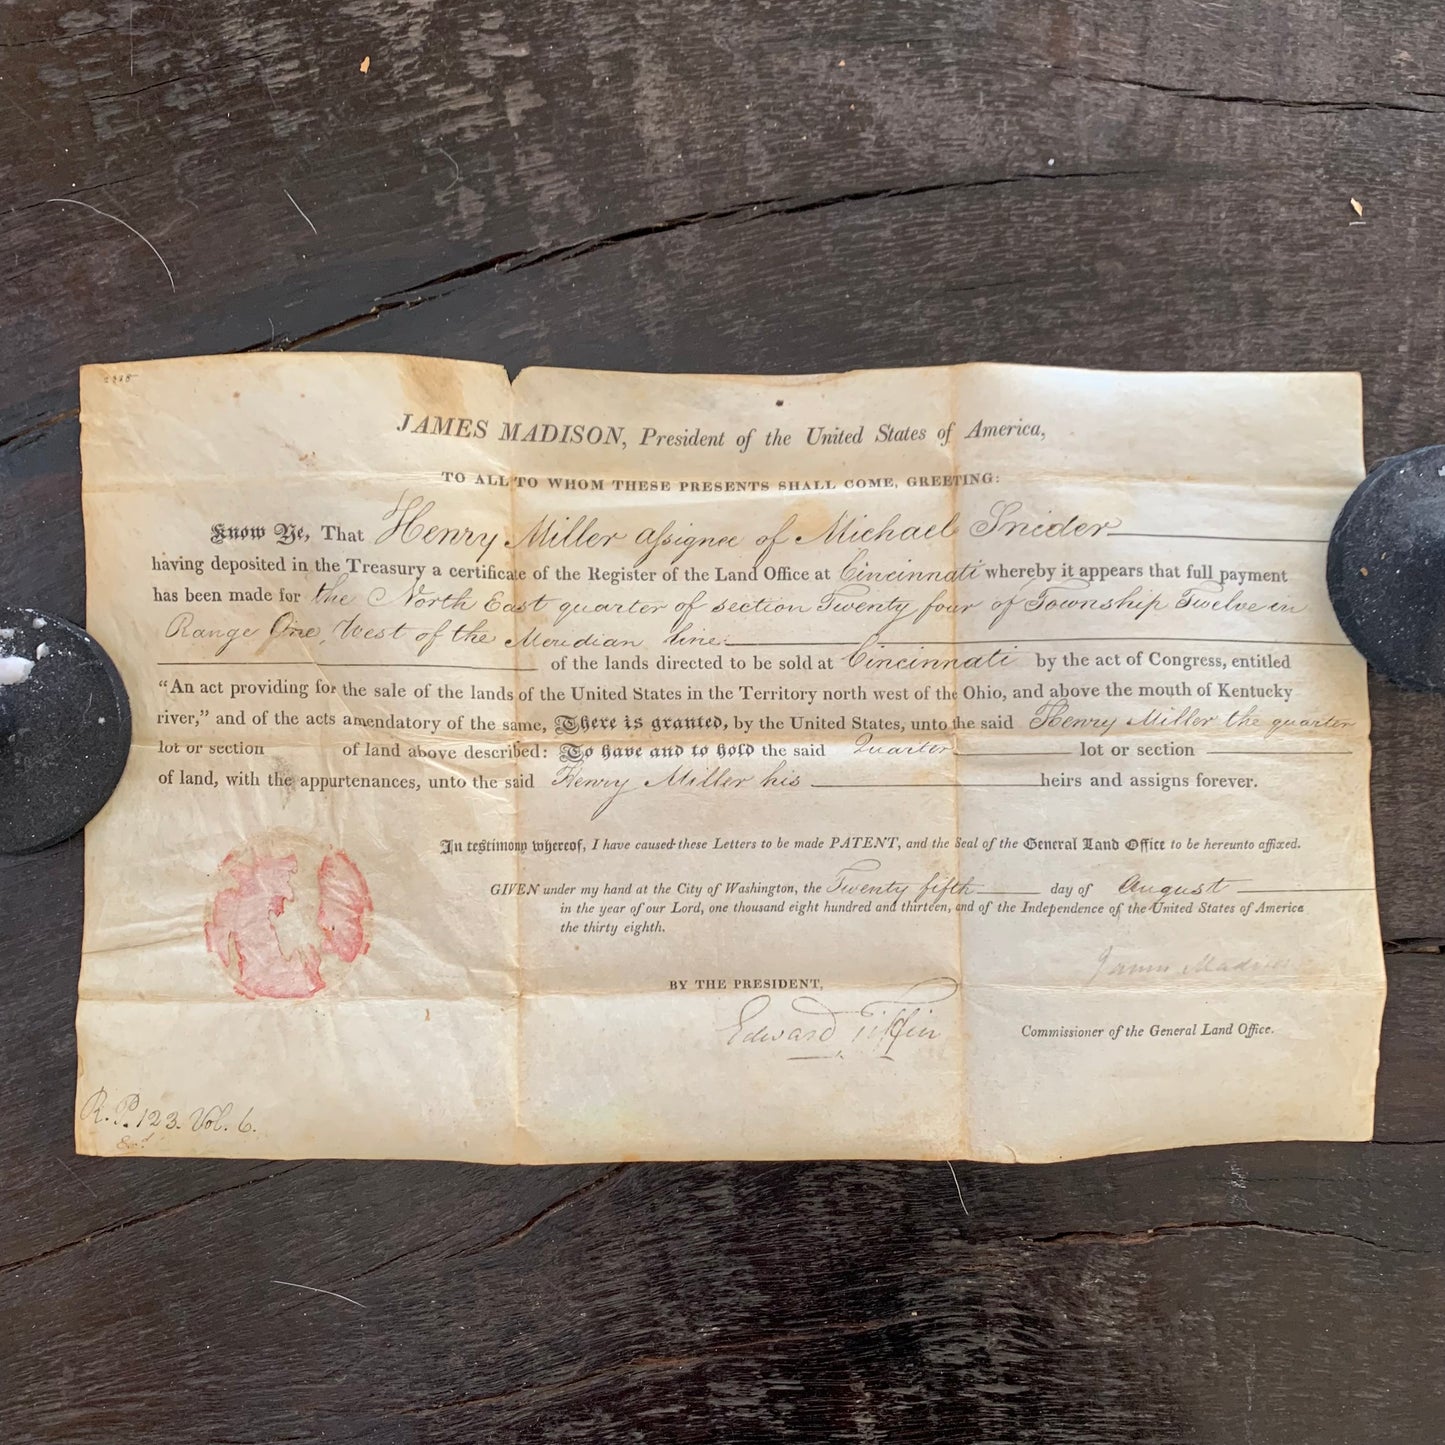 2388
JAMES MADISON, President of the United States of America,
TO ALL TO WHOM THESE PRESENTS SHALL COME, GREETING:
Know Ye, That Henry Miller assignee of Michael Snider
having deposited in the Treasury a certificate of the Register of the Land Office at Cincinnati whereby it appears that full payment
has been made for the North East quarter of section Twenty four of Township Twelve in
Range One, West of the Meridian line
of the lands directed to be sold at Cincinnati by the act of Congress, entitled
“An act providing for the sale of the lands of the United States in the Territory north west of the Ohio, and above the mouth of Kentucky
river,” and of the acts amendatory of the same, There is granted, by the United States, unto the said Henry Miller the quarter
lot or section of land above described: To have and to hold the said Quarter lot or section
of land, with the appurtenances, unto the said Henry Miller his heirs and assigns forever.
In testimony whereof, I have caused these Letters to be made PATENT, and the Seal of the General Land Office to be hereunto affixed.
GIVEN under my hand at the City of Washington, the Twenty fifth day of August
in the year of our Lord, one thousand eight hundred and thirteen, and of the Independence of the United States of America
the thirty eighth.
James Madison
BY THE PRESIDENT,
Edward Tiffin
Commissioner of the General Land Office.
R. P. 123. Vol. 6.